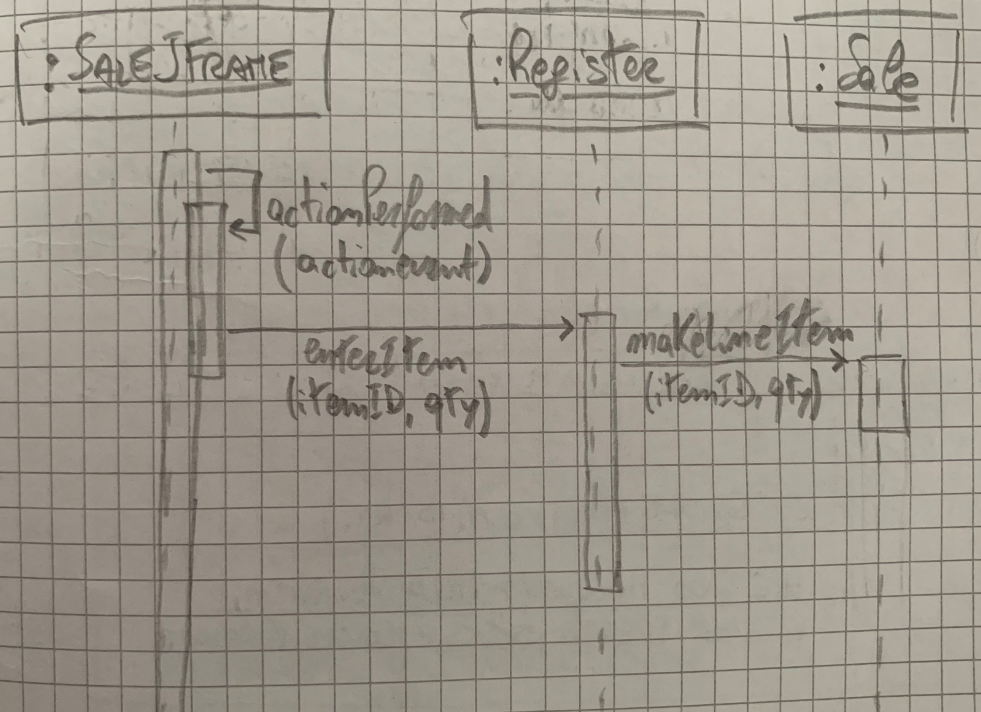 :SALEJFRAME
:Register
:Sale
actionPerformed
(actionevent)
enterItem
(itemID, qty)
makeLineItem
(itemID, qty)